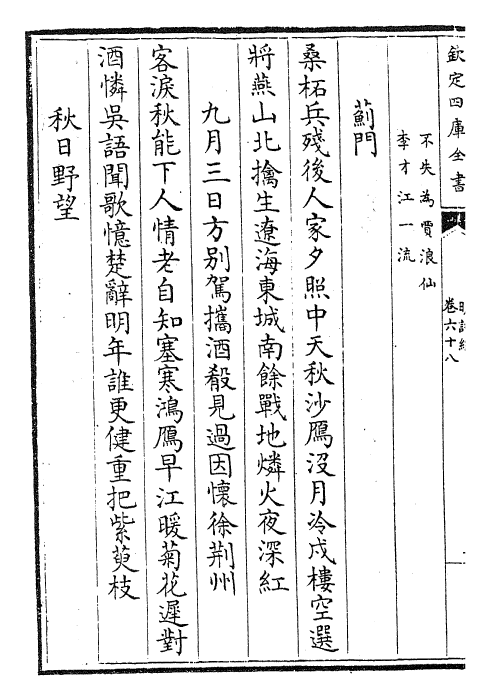 欽定四庫全書
明詩綜
卷六十八
不失為賈浪仙
李才江一流
薊門
桑柘兵殘後人家夕照中天秋沙鴈没月冷戍樓空選
將燕山北擒生遼海東城南餘戰地燐火夜深紅
九月三日方别駕攜酒殽見過因懷徐荆州
客淚秋能下人情老自知塞寒鴻鴈早江暖菊花遲對
酒憐吳語聞歌憶楚辭明年誰更健重把紫萸枝
秋日野望